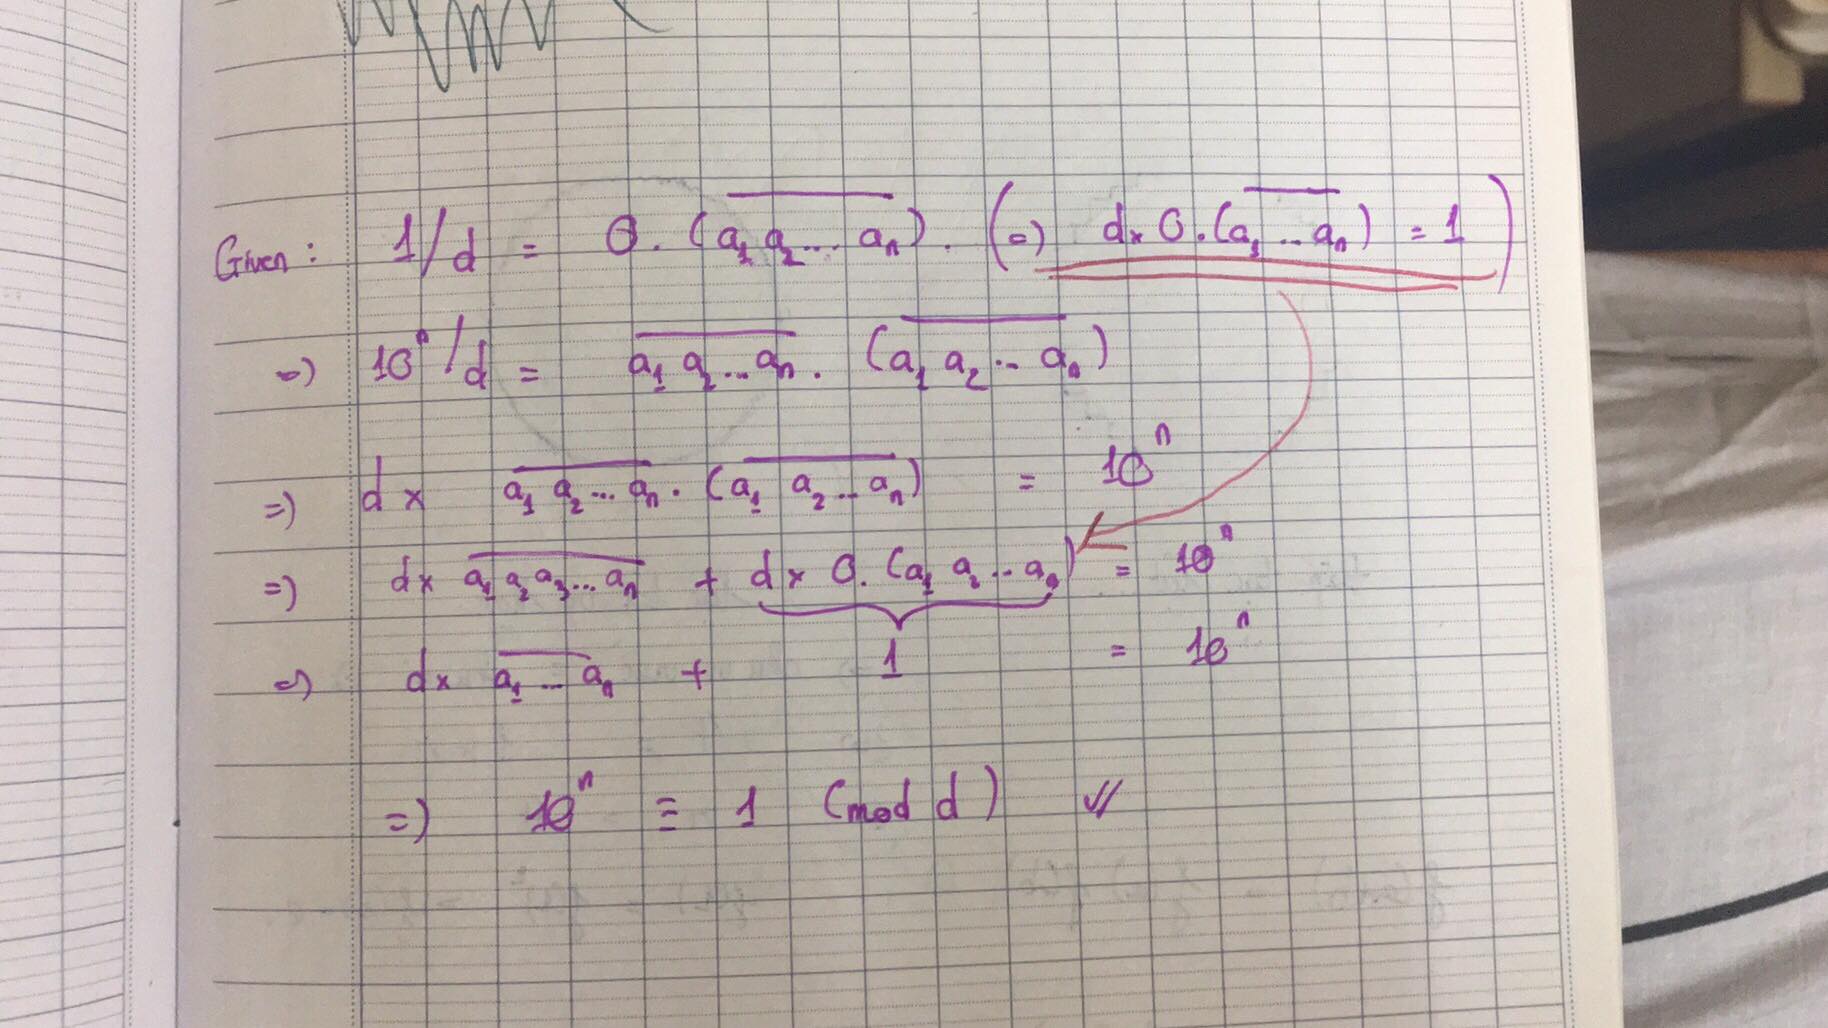 Given : 1/d = 0.(a₁ a₂ ... aₙ). (=) d× 0.(a₁ ... aₙ) = 1)
=) 10ⁿ/d = a₁ a₂ ... aₙ . (a₁ a₂ ... aₙ)
=) d × a₁ a₂ ... aₙ . (a₁ a₂ ... aₙ) = 10ⁿ
=) d× a₁ a₂ a₃ ... aₙ + d × 0.(a₁ a₂ ... aₙ) = 10ⁿ
=) d× a₁ ... aₙ + 1 = 10ⁿ
=) 10ⁿ ≡ 1 (mod d)